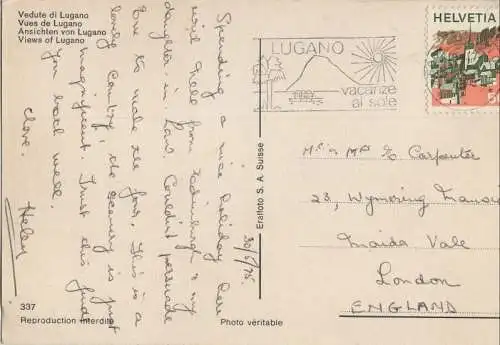 Vedute di Lugano
Vues de Lugano
Ansichten von Lugano
Views of Lugano
Spending a nice holiday here
with niece from Edinburgh & my
daughter-in-Law. Couldn't persuade
Eric to make the four. This is a
lovely country & the scenery is just
magnificent. Trust this finds
you both well.
Love.
Helen
30/5/75.
337
Reproduction interdite
Photo véritable
Eralfoto S. A. Suisse
LUGANO
vacanze
al sole
HELVETIA
Mrs & Mr E Carpenter
23, Wymering Mansions
Maida Vale
London
ENGLAND